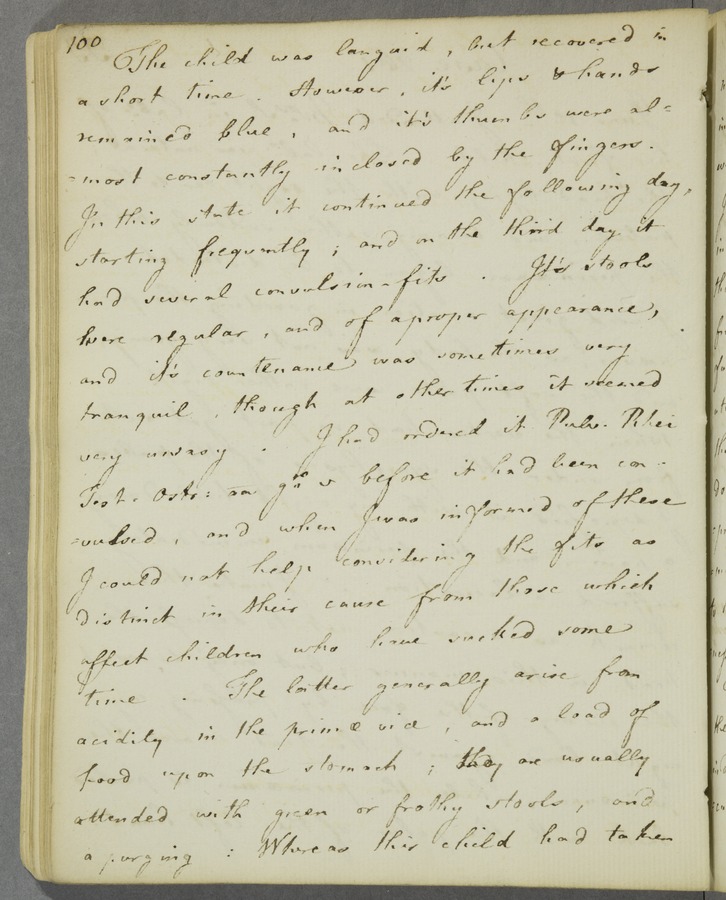 100
The child was languid, but recovered in
a short time. However, it's lips & hands
remained blue, and it's thumbs were al=
=most constantly inclosed by the fingers.
In this state it continued the following day,
starting frequently; and on the third day it
had several convulsion-fits. It's stools
were regular, and of a proper appearance,
and it's countenance was sometimes very
tranquil, though at other times it seemed
very uneasy. I had ordered it Pulv. Rhei
Test. Ostr: aa grs v before it had been con-
=vulsed, and when I was informed of these
I could not help considering the fits as
distinct in their cause from those which
affect children who have sucked some
time. The latter generally arise from
acidity in the primæ viæ, and a load of
food upon the stomach; they are usually
attended with green or frothy stools, and
a purging: Whereas this child had taken